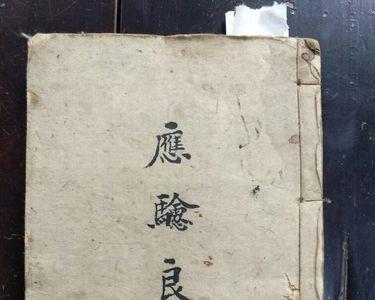 應驗良